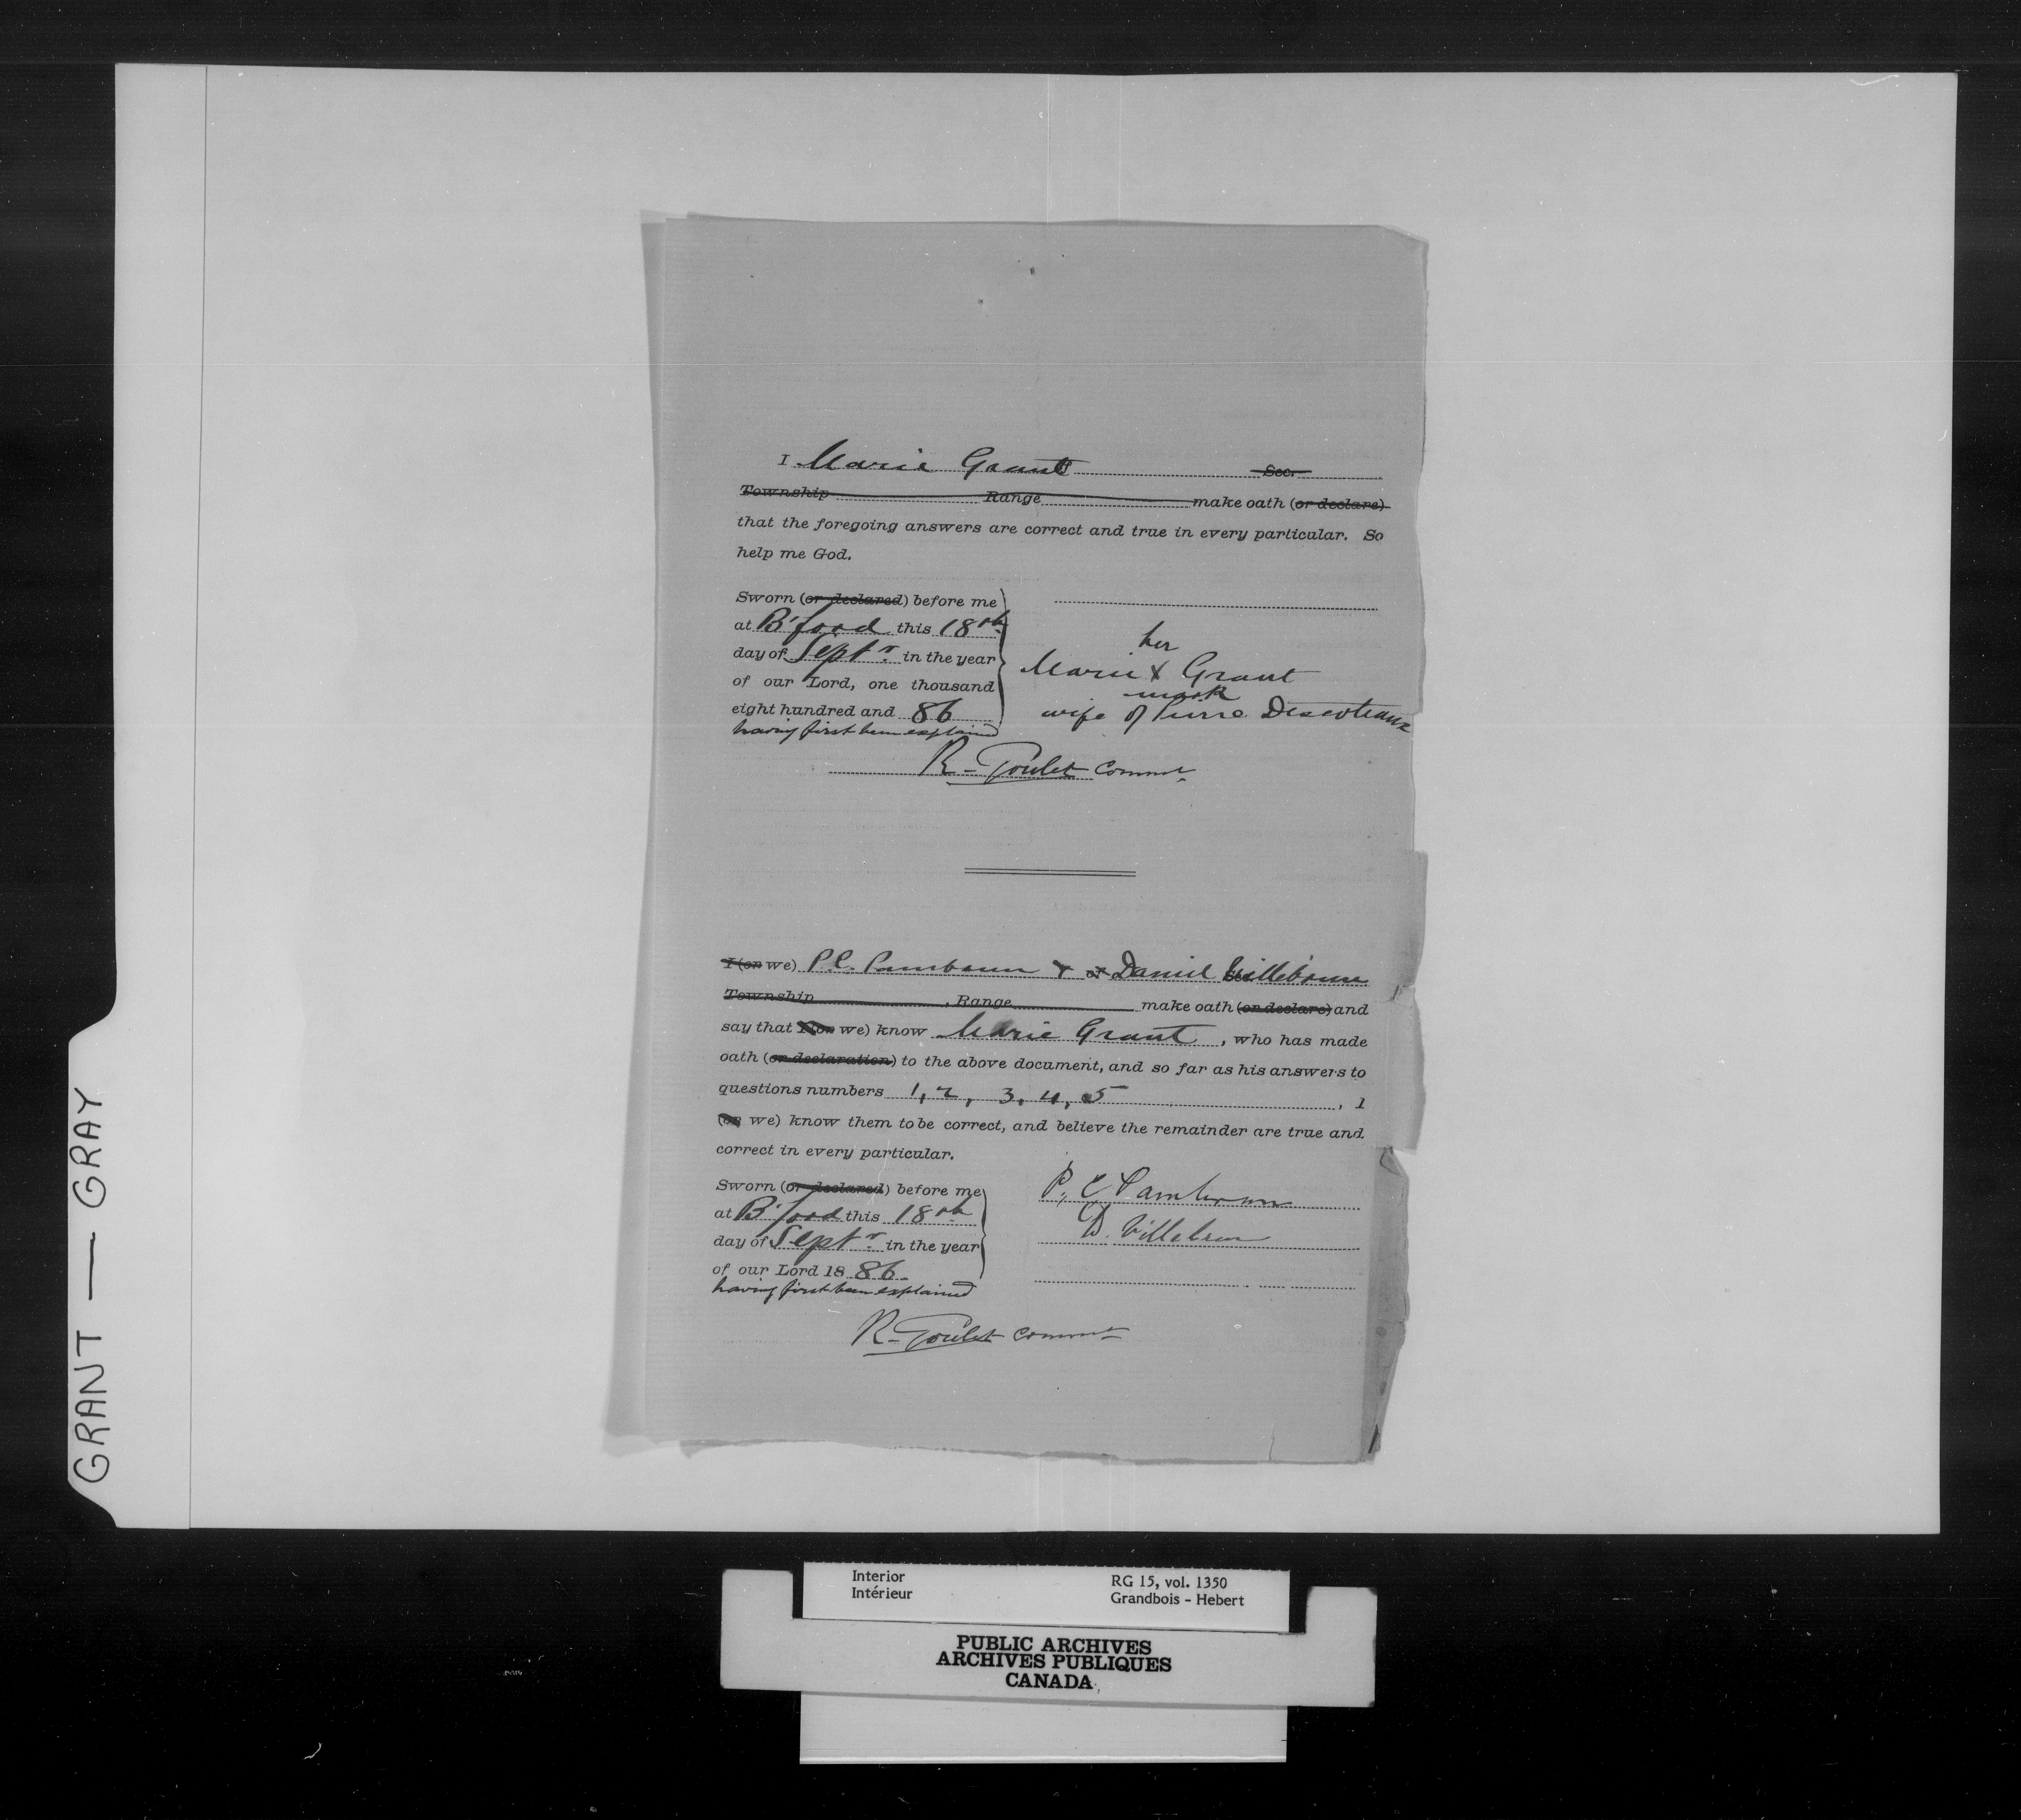 I Marie Grant Sec.
Township Range make oath (or declare)
that the foregoing answers are correct and true in every particular. So
help me God.
Sworn (or declared) before me
at B'ford this 18th
day of Septr. in the year
of our Lord, one thousand
eight hundred and 86
having first been explained
her
Marie X Grant
mark
wife of Pierre Descoteaux
R. Goulet Commr
I (or we) P.C. Pambrun & of Daniel Villebrun
Township , Range make oath (or declare) and
say that I (or we) know Marie Grant , who has made
oath (or declaration) to the above document, and so far as his answers to
questions numbers 1, 2, 3, 4, 5 , I
(or we) know them to be correct, and believe the remainder are true and
correct in every particular.
Sworn (or declared) before me
at B'ford this 18th
day of Septr. in the year
of our Lord 18 86
having first been explained
P. C Pambrun
D. Villebrun
R. Goulet Commr
GRANT — GRAY
Interior
Intérieur
RG 15, vol. 1350
Grandbois - Hebert
PUBLIC ARCHIVES
ARCHIVES PUBLIQUES
CANADA